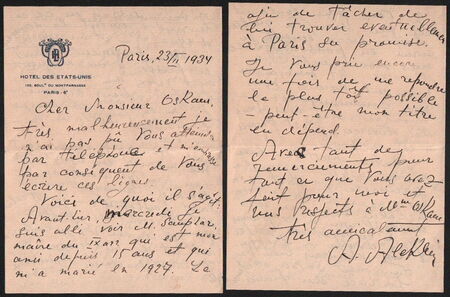 HOTEL DES ETATS-UNIS
135, BOULD DU MONTPARNASSE
PARIS - 6e
Paris, 23/II 1934
Cher Monsieur Oskam,
très malheureusement je
n'ai pas pu vous atteindre
par téléphone et m'empresse
par conséquent de vous
écrire ces lignes.
Voici de quoi il s'agit.
Avant-hier, mercredi je
suis allé voir M.
maire du IX arr. qui est mon
ami depuis 15 ans et qui
m'a marié en 1927. Le
afin de tâcher de
lui trouver éventuellement
à Paris sa promise.
Je vous prie encore
une fois de me répondre
le plus tôt possible
- peut-être mon titre
en dépend.
Avec tant de
remerciements pour
tout ce que vous avez
fait pour moi et
mes respects à Mme Oskam
très amicalement
A. Alekhin